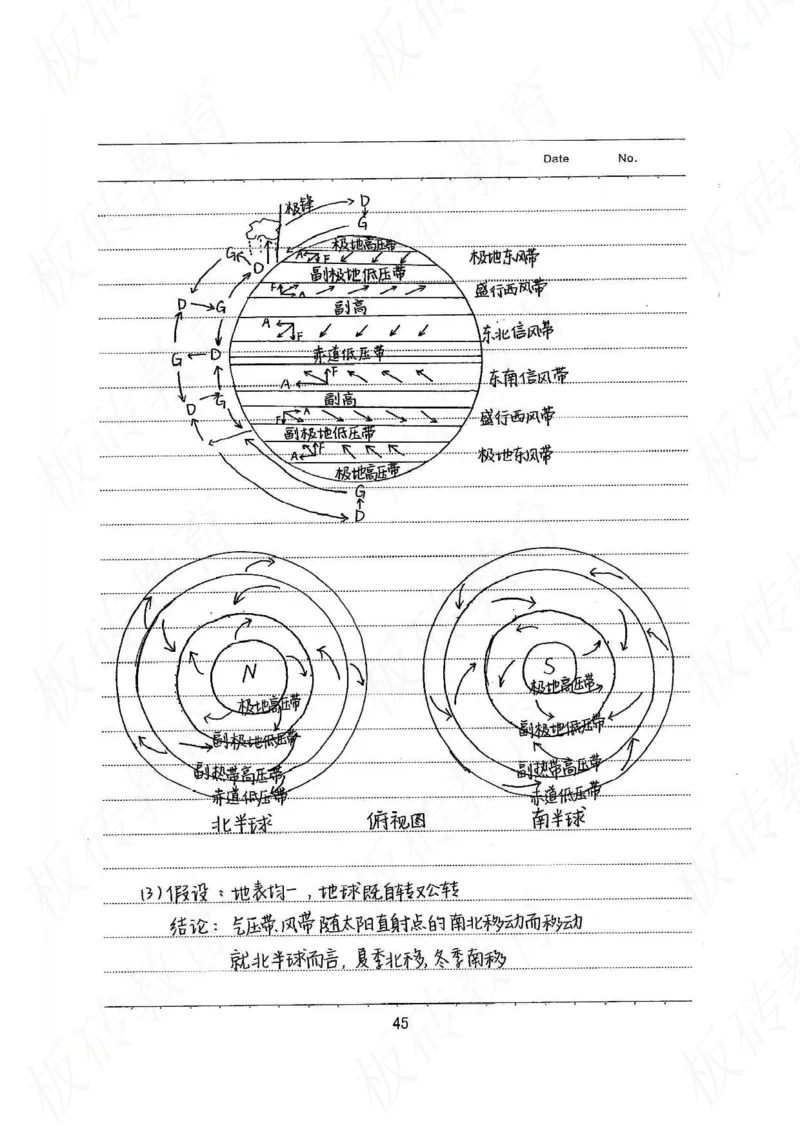 Date No.
极锋 D
G
极地高压带
A F
极地东风带
G D
副极地低压带
F A
盛行西风带
D G
副高
A F
东北信风带
G D
赤道低压带
F
A
东南信风带
D G
副高
F A
盛行西风带
副极地低压带
A F
极地东风带
极地高压带
G
D
N
极地高压带
副极地低压带
副热带高压带
赤道低压带
北半球
俯视图
S
极地高压带
副极地低压带
副热带高压带
赤道低压带
南半球
(3)假设：地表均一，地球既自转又公转
结论：气压带、风带随太阳直射点的南北移动而移动
就北半球而言，夏季北移，冬季南移
45
板砖教育